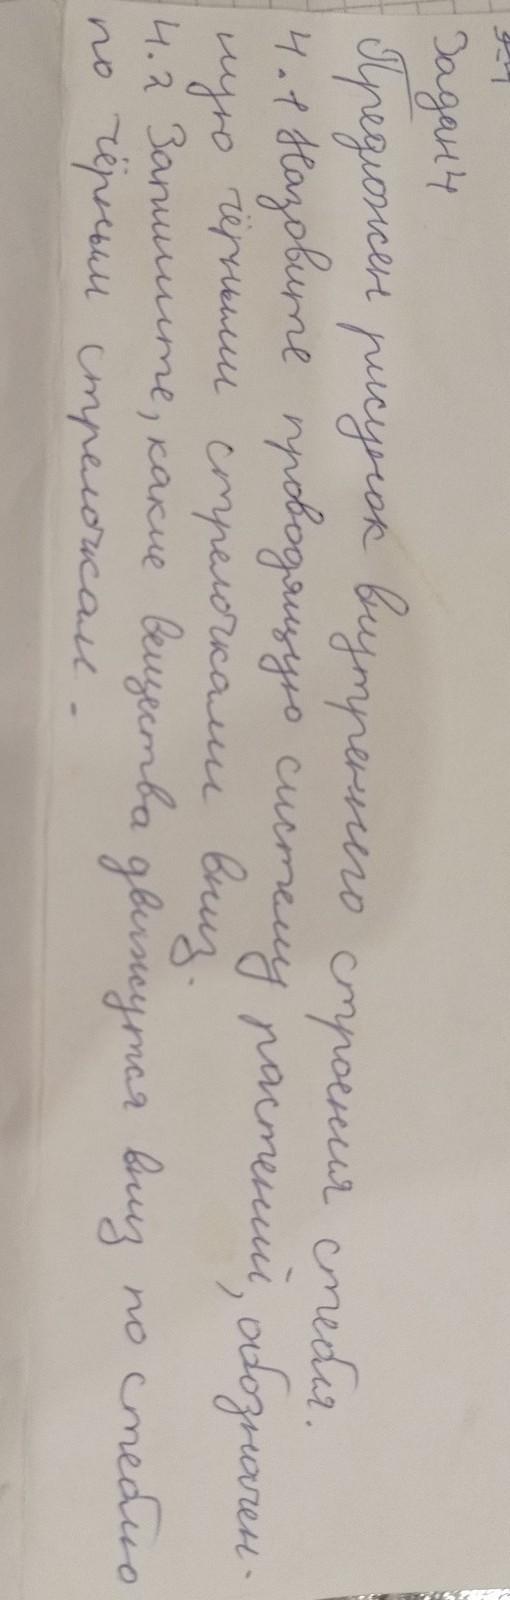 Задан 4
Предложен рисунок внутреннего строения стебля.
4.1 Назовите проводящую систему растений, обозначен-
ную чёрными стрелочками вниз.
4.2 Запишите, какие вещества движутся вниз по стеблю
по чёрным стрелочкам.